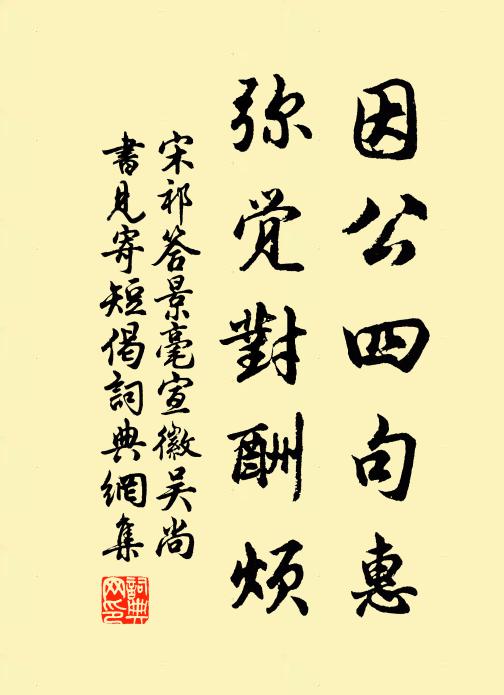 因公四句惠
弥觉對酬煩
宋祁答景亳宣徽吴尚
書見寄短偈詞典網集
詞典網印